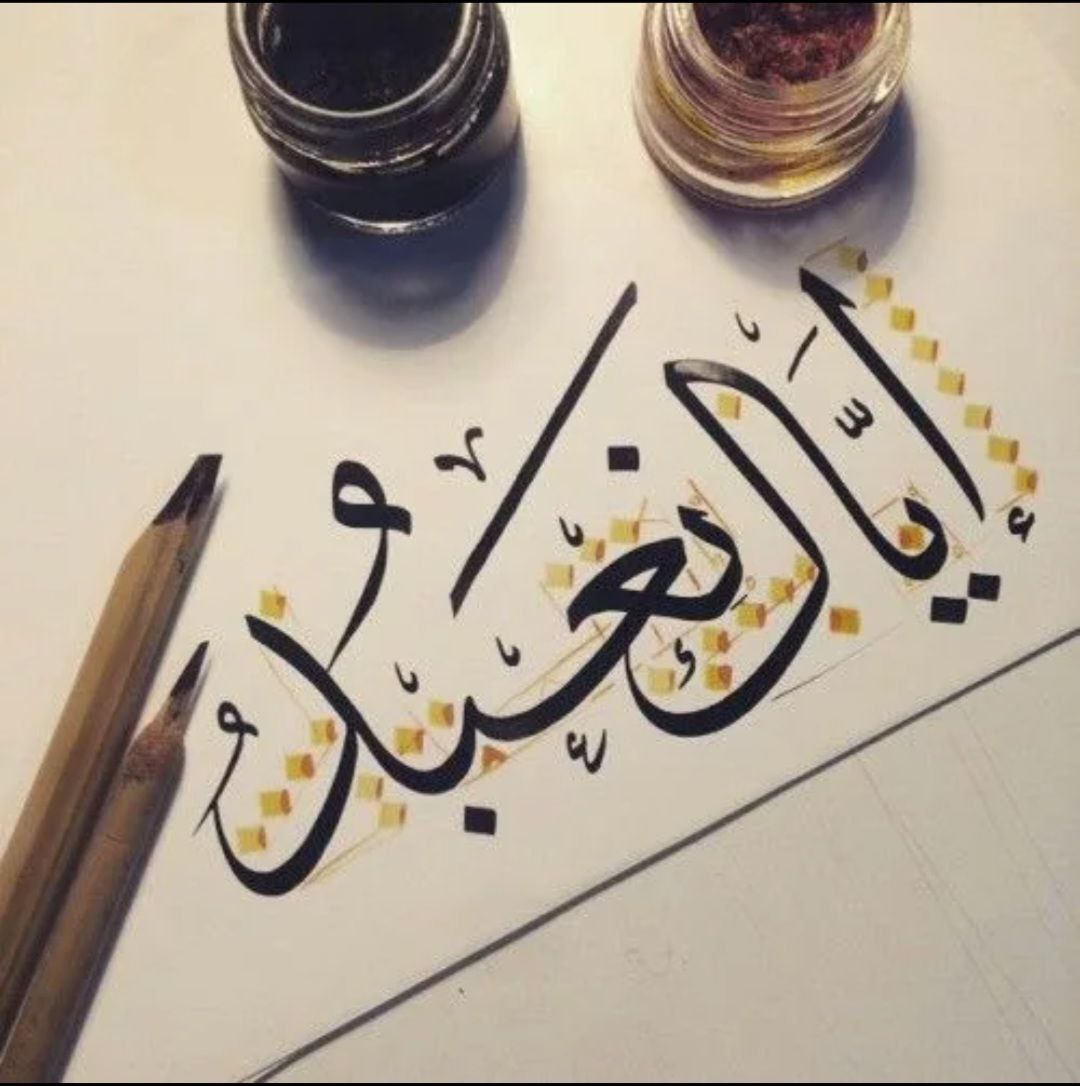 إِيَّاكَ نَعْبُدُ